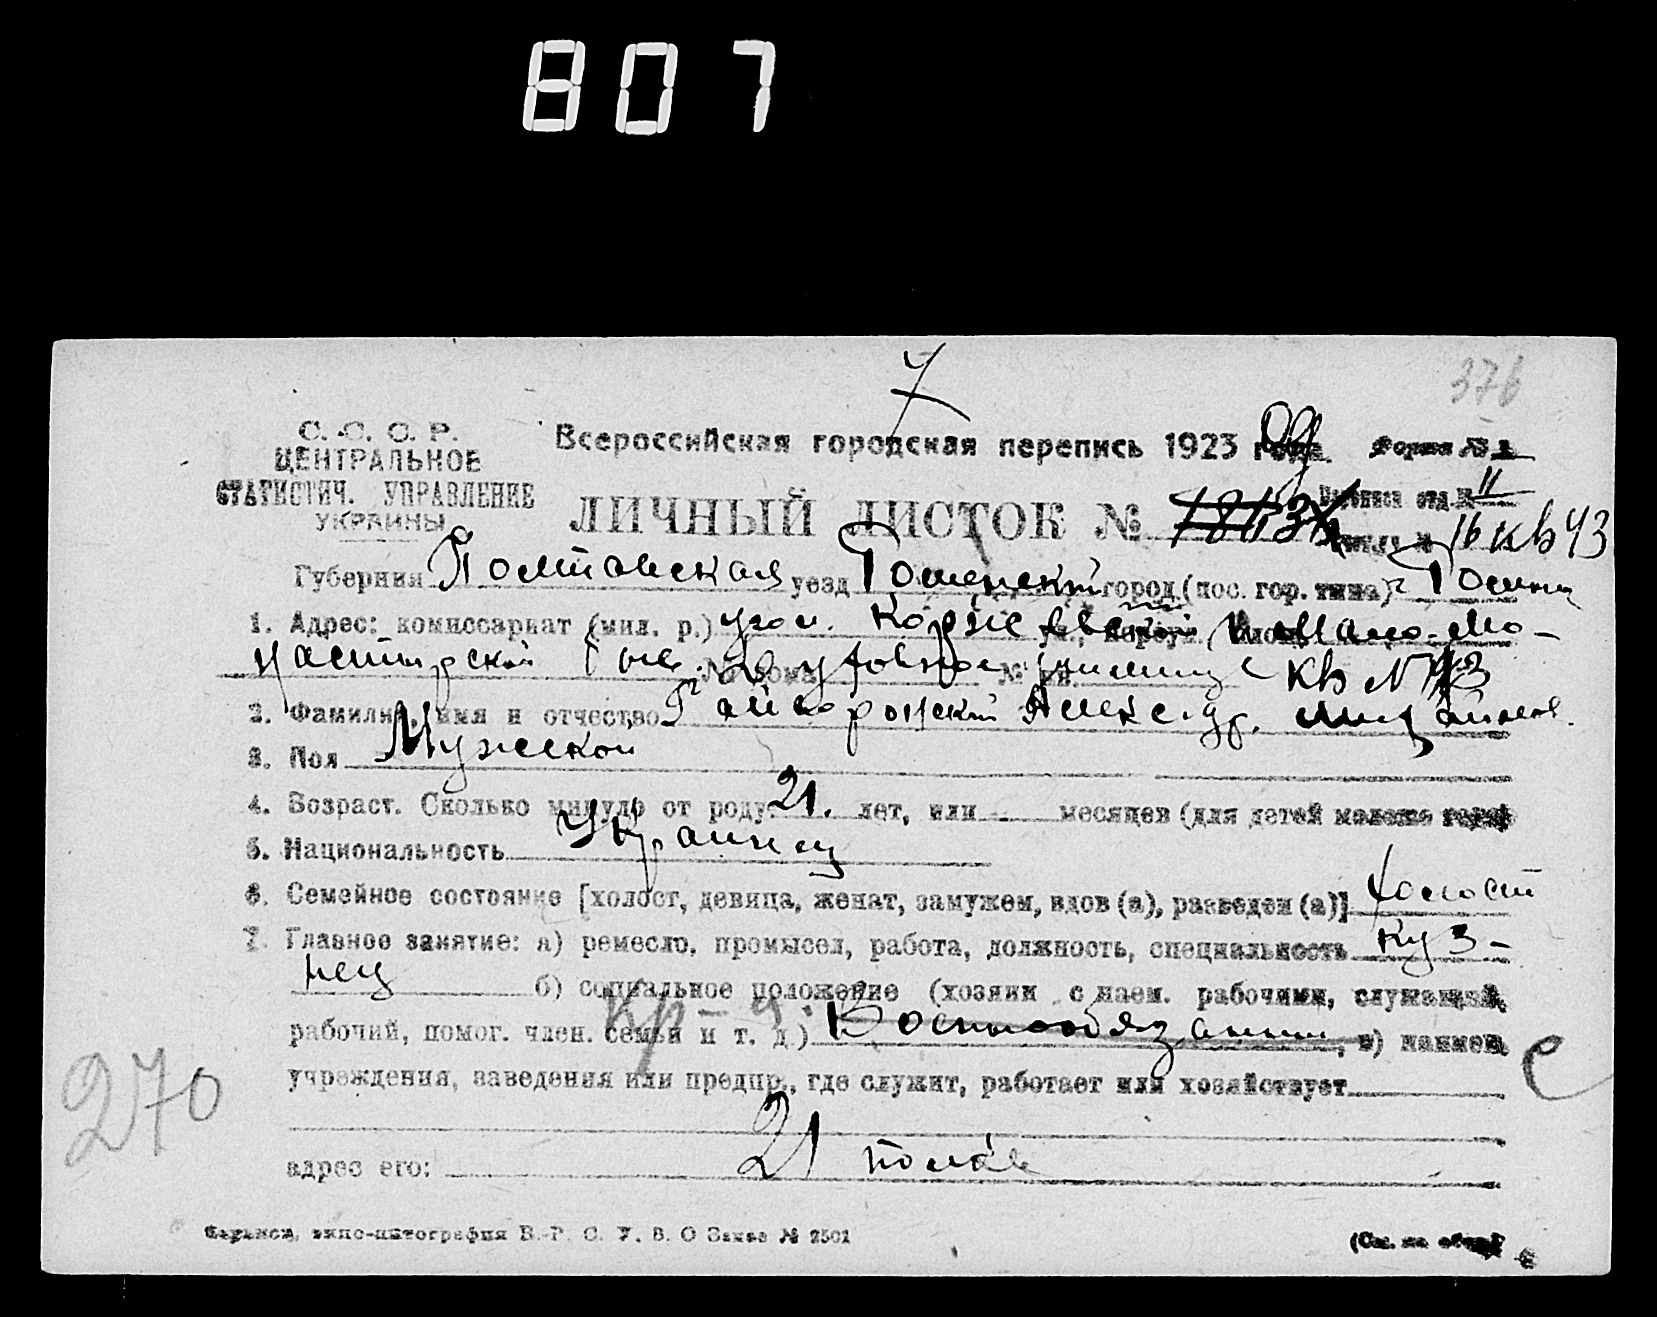 807
7
376
С. С. С. Р.
ЦЕНТРАЛЬНОЕ
СТАТИСТИЧ. УПРАВЛЕНИЕ
УКРАИНЫ
Всероссийская городская перепись 1923 года. Форма № 2
ЛИЧНЫЙ ЛИСТОК № отд. № 11
16 кв 43
Губерния Полтавская уезд Роменский город (пос. гор. типа) Ромны
1. Адрес: комиссариат (мил. р.) угол.
№ дома № кв. кв № 43
2. Фамилия, имя и отчество Гайворонский Александр.
3. Пол Мужской
4. Возраст. Сколько минуло от роду: 21. лет, или месяцев (для детей моложе года)
5. Национальность Украинец
6. Семейное состояние [холост, девица, женат, замужем, вдов (а), разведен (а)] холост
7. Главное занятие: а) ремесло, промысел, работа, должность, специальность куз-
нец б) социальное положение (хозяин с наем. рабочими, служащий,
рабочий, помог. член. семьи и т. д.) Военнообязанный, в) наимен.
учреждения, заведения или предпр., где служит, работает или хозяйствует
270
адрес его: 21
В.-Р. С. У. В. О Заказ № 2501
(См. на обор.)